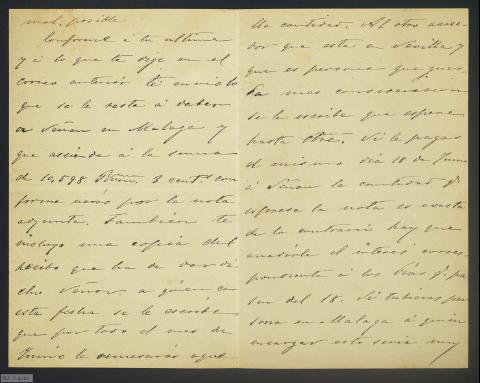 mal. posible
Conforme á tu última
y á lo que te dije en el
correo anterior te envio lo
que se le resta á deber
a Señan en Malaga y
que asciende á la suma
de 10,598 3 cent. con
forme verás por la nota
adjunta. Tambien te
incluyo una copia del
recibo que ha de dar di
cho Señor. a quien con
esta fecha se le escribe
que por todo el mes de
Junio le remesarás aque
lla cantidad. Al otro acree
dor que esta en Sevilla y
que es persona que guar
da mas consideracion
se le escribe que espere
hasta Si le pagas
el mismo dia 18 de Junio
á Señan la cantidad q.
expresa la nota es exacta
de lo contrario hay que
anadirle el interés corres
pondiente á los dias q. pa
sen del 18. Si tubieras per
sona en Malaga á quien
encargar esto seria muy